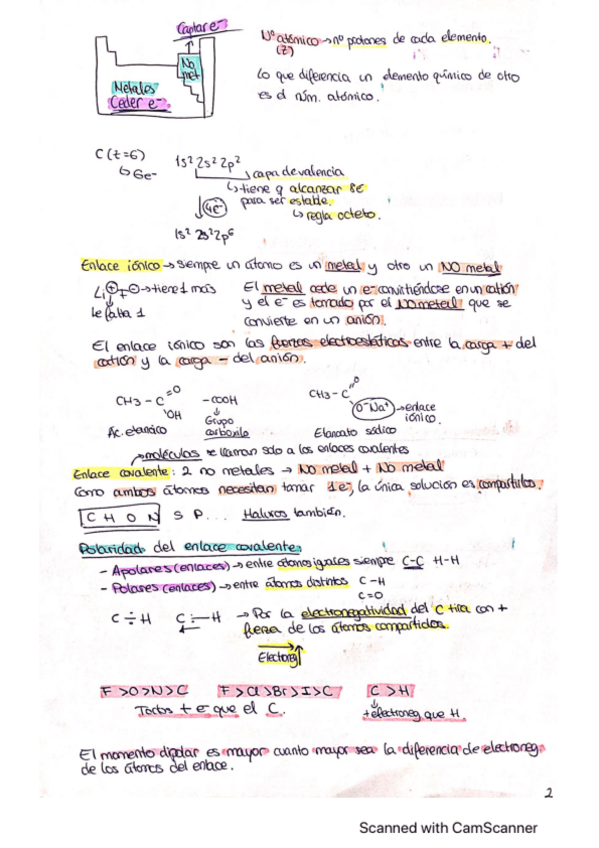 Captar e⁻
No met
Metales
Ceder e⁻.
Nº atómico → nº protones de cada elemento.
(Z)
Lo que diferencia un elemento químico de otro
es el núm. atómico.
C (t=6)
↳ 6e⁻
1s² 2s² 2p²
↳ capa de valencia
↳ tiene q alcanzar 8e⁻
para ser estable.
↳ regla octeto.
4e⁻
1s² 2s² 2p⁶
Enlace iónico → siempre un átomo es un metal y otro un NO metal
Li⁺ F⁻ → tiene 1 más
le falta 1
El metal cede un e⁻ convirtiéndose en un catión
y el e⁻ es tomado por el NO metal que se
convierte en un anión.
El enlace iónico son las fuerzas electroestáticas entre la carga + del
catión y la carga - del anión.
CH3 - C =O OH
-COOH
CH3 - C =O O⁻Na⁺ → enlace iónico.
Ac. etanoico
Grupo carboxilo
Etanoato sódico
moléculas se llaman solo a los enlaces covalentes
Enlace covalente: 2 no metales → No metal + No metal
Como ambos átomos necesitan tomar 1e⁻, la única solución es compartirlos.
C H O N S P... Haluros también.
Polaridad del enlace covalente:
- Apolares (enlaces) → entre átomos iguales siempre C-C H-H
- Polares (enlaces) → entre átomos distintos C-H
C=O
C ÷ H C :— H → Por la electronegatividad del C tira con +
fuerza de los átomos compartidos.
Electroneg ↑
F > O > N > C F > Cl > Br > I > C C > H
Todos + e⁻ que el C. + electroneg que H.
El momento dipolar es mayor cuanto mayor sea la diferencia de electroneg.
de los átomos del enlace.
2
Scanned with CamScanner